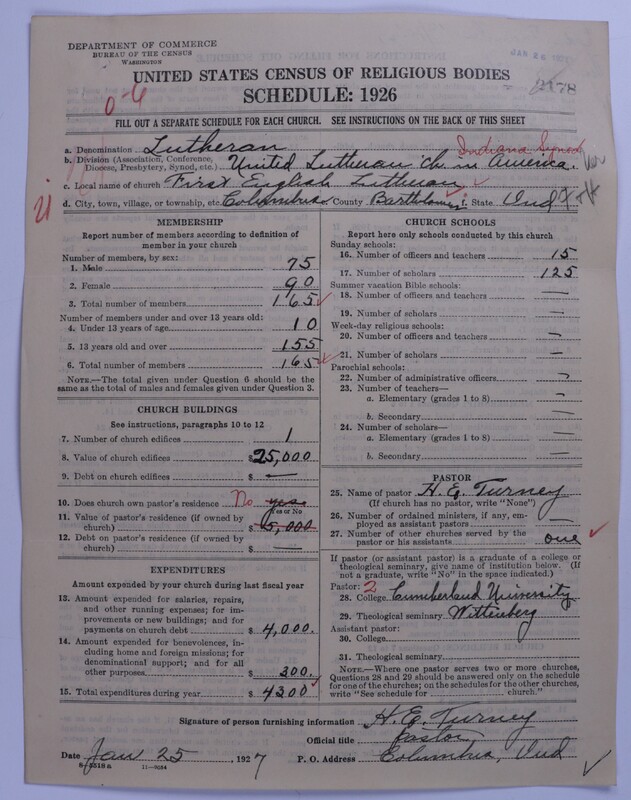 DEPARTMENT OF COMMERCE
BUREAU OF THE CENSUS
WASHINGTON
UNITED STATES CENSUS OF RELIGIOUS BODIES
SCHEDULE: 1926
0-6
FILL OUT A SEPARATE SCHEDULE FOR EACH CHURCH. SEE INSTRUCTIONS ON THE BACK OF THIS SHEET
a. Denomination Lutheran
Indiana Synod
b. Division (Association, Conference, Diocese, Presbytery, Synod, etc.) United Lutheran Ch in America
c. Local name of church First English Lutheran
d. City, town, village, or township, etc. Columbus County Bartholomew State Ind
MEMBERSHIP
Report number of members according to definition of member in your church
Number of members, by sex:
1. Male 75
2. Female 90
3. Total number of members 165
Number of members under and over 13 years old:
4. Under 13 years of age 10
5. 13 years old and over 155
6. Total number of members 165
NOTE.—The total given under Question 6 should be the same as the total of males and females given under Question 3.
CHURCH BUILDINGS
See instructions, paragraphs 10 to 12
7. Number of church edifices 1
8. Value of church edifices $ 25,000
9. Debt on church edifices $ —
10. Does church own pastor's residence No yes
Yes or No
11. Value of pastor's residence (if owned by church) $ 5,000
12. Debt on pastor's residence (if owned by church) $ —
EXPENDITURES
Amount expended by your church during last fiscal year
13. Amount expended for salaries, repairs, and other running expenses; for improvements or new buildings; and for payments on church debt $ 4,000.
14. Amount expended for benevolences, including home and foreign missions; for denominational support; and for all other purposes $ 300.
15. Total expenditures during year $ 4300
CHURCH SCHOOLS
Report here only schools conducted by this church
Sunday schools:
16. Number of officers and teachers 15
17. Number of scholars 125
Summer vacation Bible schools:
18. Number of officers and teachers —
19. Number of scholars —
Week-day religious schools:
20. Number of officers and teachers —
21. Number of scholars —
Parochial schools:
22. Number of administrative officers —
23. Number of teachers—
a. Elementary (grades 1 to 8) —
b. Secondary —
24. Number of scholars—
a. Elementary (grades 1 to 8) —
b. Secondary —
PASTOR
25. Name of pastor H. E. Turney
(If church has no pastor, write "None")
26. Number of ordained ministers, if any, employed as assistant pastors —
27. Number of other churches served by the pastor or his assistants one
If pastor (or assistant pastor) is a graduate of a college or theological seminary, give name of institution below. (If not a graduate, write "No" in the space indicated.)
Pastor: 2
28. College Cumberland University
29. Theological seminary Wittenberg
Assistant pastor:
30. College
31. Theological seminary
NOTE.—Where one pastor serves two or more churches, Questions 28 and 29 should be answered only on the schedule for one of the churches; on the schedules for the other churches, write "See schedule for church."
Signature of person furnishing information H. E. Turney
Official title Pastor
Date Jan 25, 1927 P. O. Address Columbus, Ind
8-5518a 11-9084